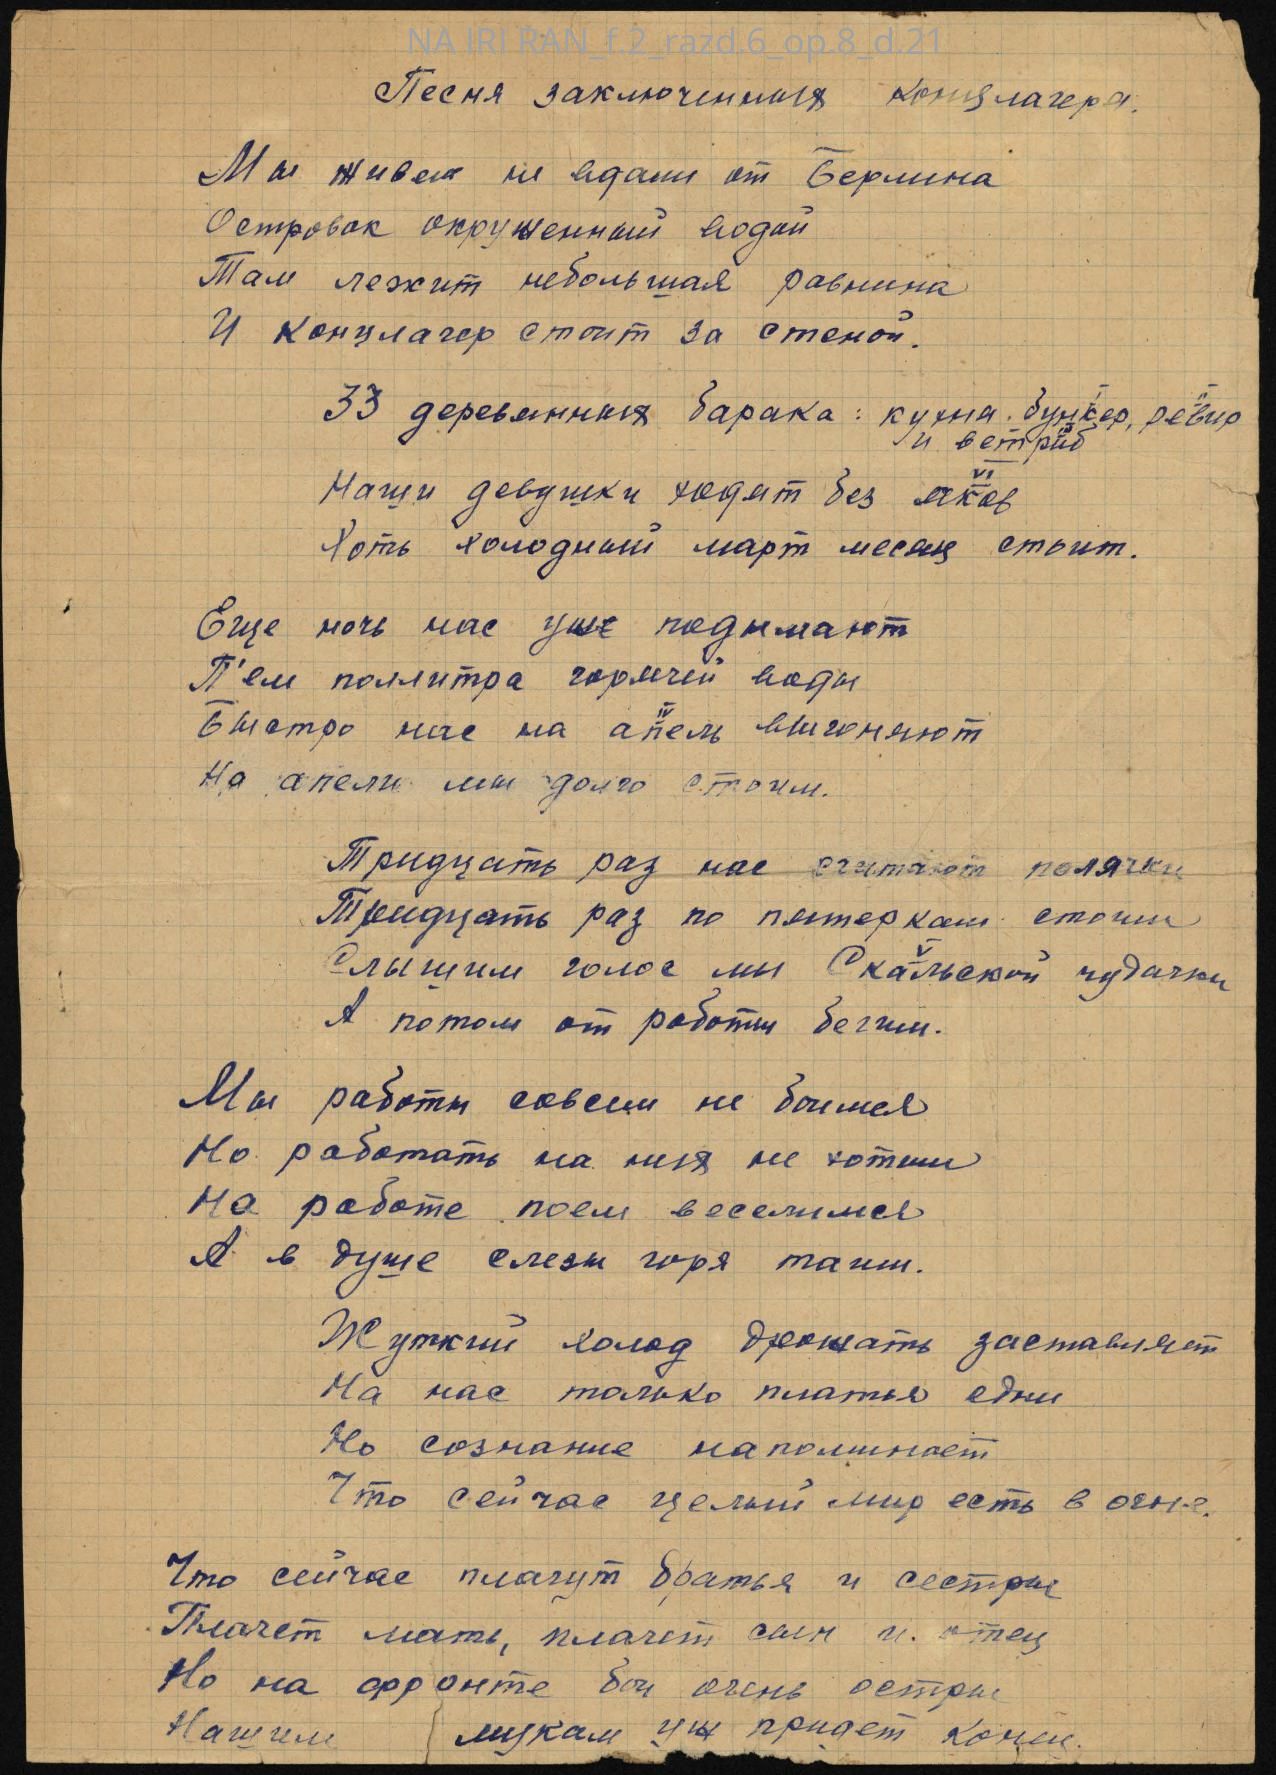 NA IRI RAN_f.2_razd.6_op.8_d.21
Песня заключенных концлагера.
Мы живем не вдали от Берлина
Островок окруженный водой
Там лежит небольшая равнина
И концлагер стоит за стеной.
33 деревянных барака: кухня. бункер, ревир
и ветриб
Наши девушки ходят без яков
Хоть холодный март месяц стоит.
Еще ночь нас уже подымают
П'ем поллитра горячей воды
Быстро нас на апель выгоняют
На апели мы долго стоим.
Тридцать раз нас считают полячки
Тридцать раз по пятеркам стоим
Слышим голос мы Скальской чудачки
А потом от работы бегим.
Мы работы совсем не боимся
Но работать на них не хотим
На работе поем веселимся
А в душе слезы горя таим.
Жуткий холод дрожать заставляет
На нас только платья одни
Но сознание напоминает
Что сейчас целый мир есть в огне.
Что сейчас плачут братья и сестры
Плачет мать, плачет сын и отец
Но на фронте бои очень остры
Нашим мукам уж придет конец.